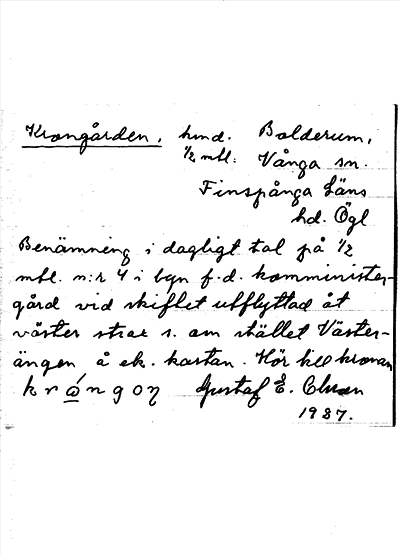 Krongården, hmd. Bolderum,
1/2 mtl. Vånga sn.
Finspånga Läns
hd. Ögl
Benämning i dagligt tal på 1/2
mtl. n:r 4 i byn f.d. komminister-
gård vid skiftet utflyttad åt
väster strax s. om stället Väster-
ängen å ek. kartan. Hör till kronan
krångoŋ Gustaf E. Olson
1937.